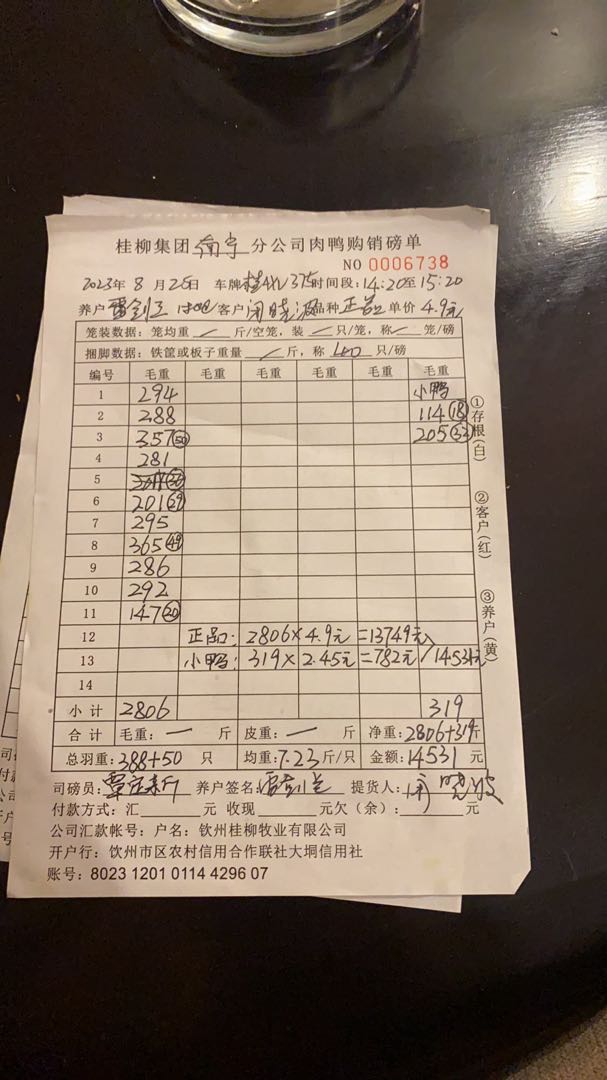 桂柳集团南宁分公司肉鸭购销磅单
NO 0006738
2023年 8 月 26日 车牌 375 时间段:14:20至15:20
养户 雷剑 客户 闭晓波 品种 正品 单价 4.9元
笼装数据: 笼均重 / 斤/空笼, 装 / 只/笼, 称 / 笼/磅
捆脚数据: 铁筐或板子重量 / 斤, 称 40 只/磅
编号 毛重 毛重 毛重 毛重 毛重 毛重
1 294 小鸭
2 288 114 (18)
3 357 (50) 205 (32)
4 281
5
6 201 (29)
7 295
8 365 (49)
9 286
10 292
11 147 (20)
12 正品: 2806×4.9元=13749元
13 小鸭: 319×2.45元=782元 / 14531元
14
小计 2806 319
合计 毛重: 一 斤 皮重: 一 斤 净重: 2806+319斤
总羽重: 388+50 只 均重: 7.23 斤/只 金额: 14531 元
司磅员: 养户签名: 雷剑 提货人: 闭晓波
付款方式: 汇 元 收现 元欠(余): 元
公司汇款帐号: 户名: 钦州桂柳牧业有限公司
开户行: 钦州市区农村信用合作联社大垌信用社
账号: 8023 1201 0114 4296 07
①存根(白)
②客户(红)
③养户(黄)